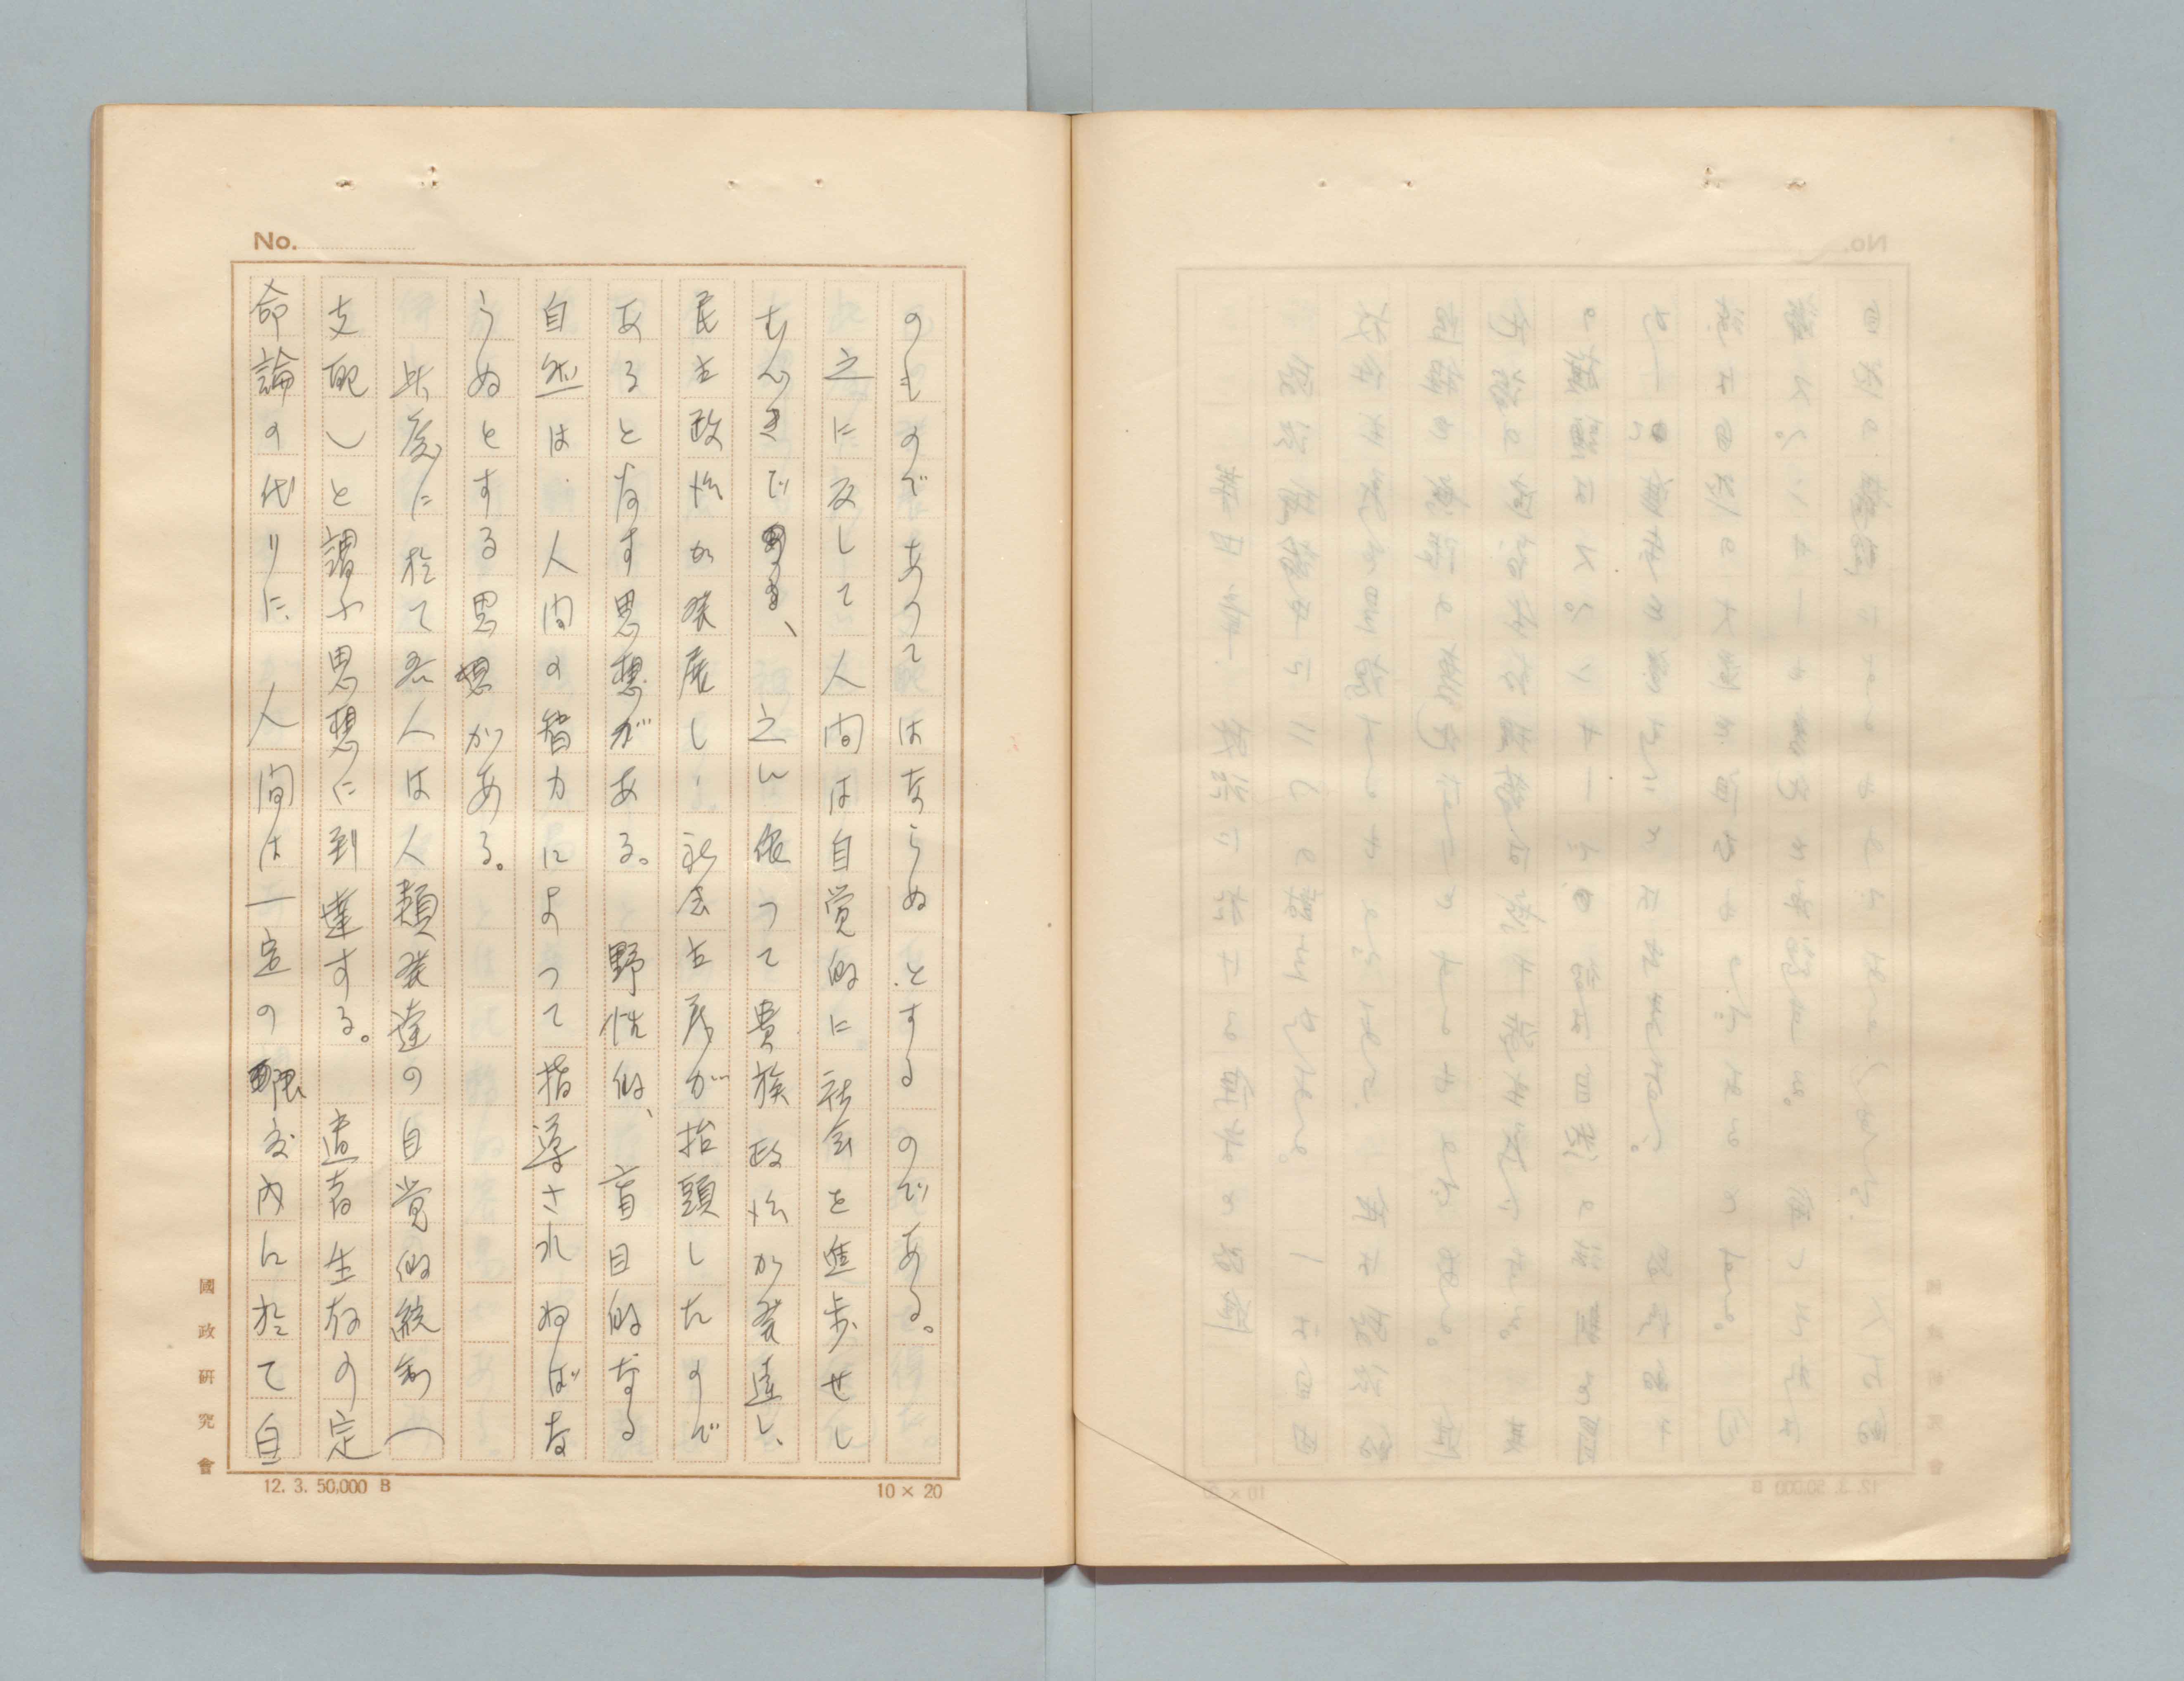 No.
のものであつてはならぬとするのである。
之に反して人間は自覚的に社会を進歩せし
むべきで、之に依つて貴族政治が発達し、
民主政治が発展し、社会主義が抬頭したので
あると なす思想がある。野性的、盲目的なる
自然は、人間の智力によつて指導されねばな
らぬとする思想がある。
此處に於て吾人は人類発達の自覚的統制(
支配)と謂ふ思想に到達する。適者生存の定
命論の代りに、人間は一定の限度内に於て自
國政研究會
12. 3. 50,000 B
10 × 20